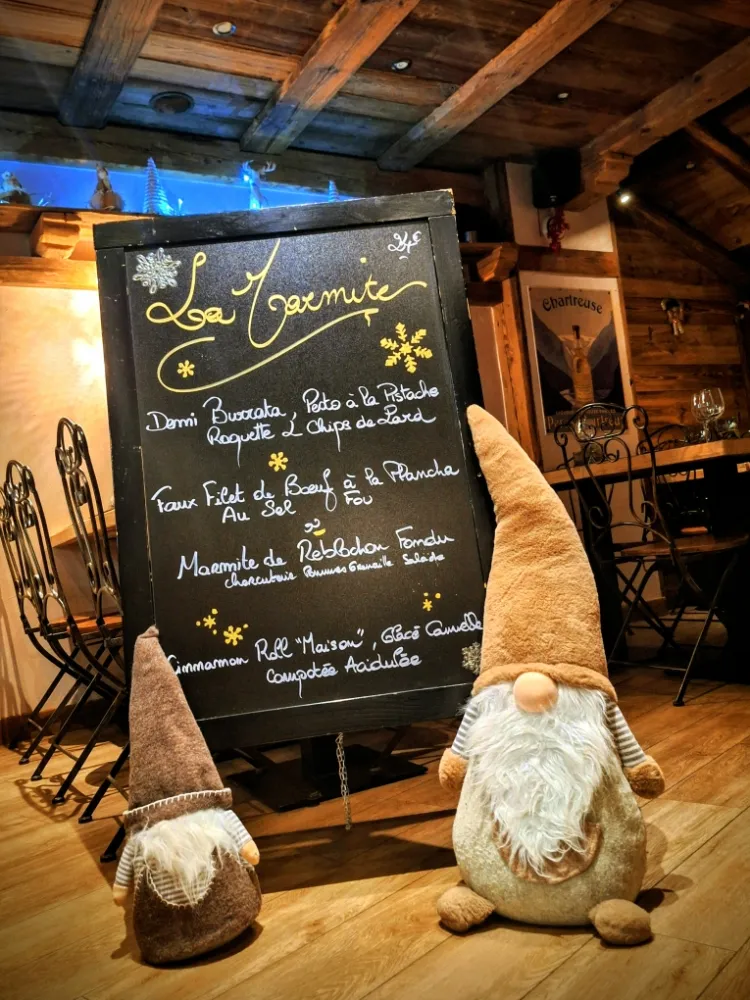 24€
La Marmite
Demi Burrata, Pesto à la Pistache
Roquette & Chips de Lard
Faux Filet de Bœuf à la Plancha
Au Sel Fou
ou
Marmite de Reblochon Fondu
charcuterie Pommes Grenaille Salade
Cinnamon Roll "Maison", Glace Cannelle
Compotée Acidulée
Chartreuse